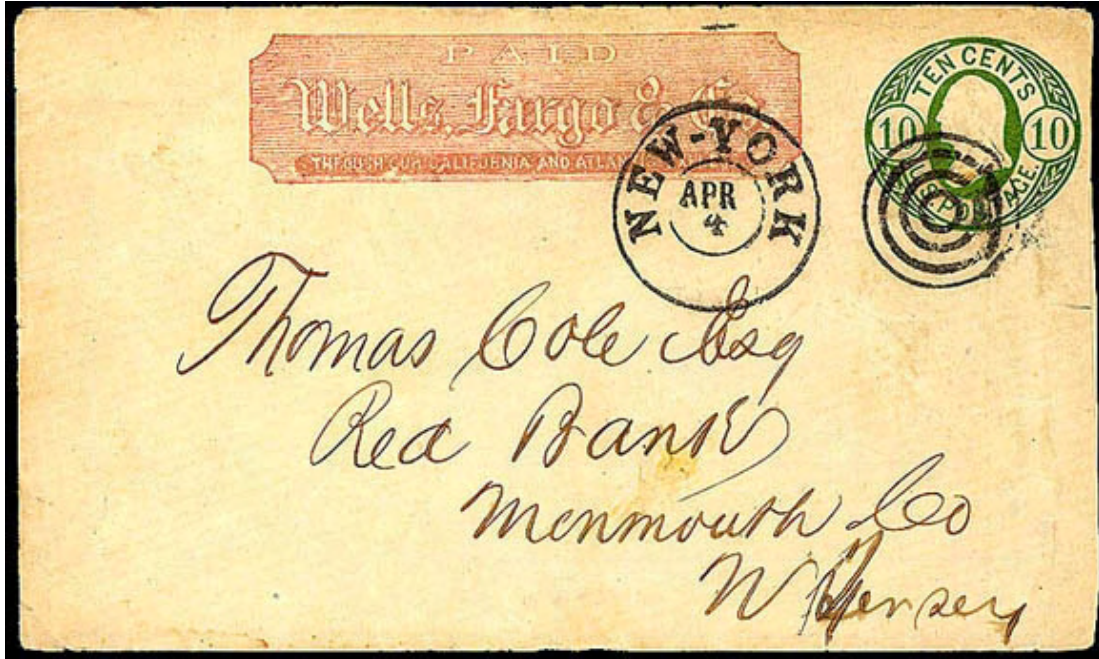 PAID
Wells, Fargo & Co.
THROUGH OUR CALIFORNIA AND ATLAN
TEN CENTS
10 10
U.S. POSTAGE.
NEW-YORK
APR
4
Thomas Cole Esq
Red Bank
Monmouth Co
N Jersey